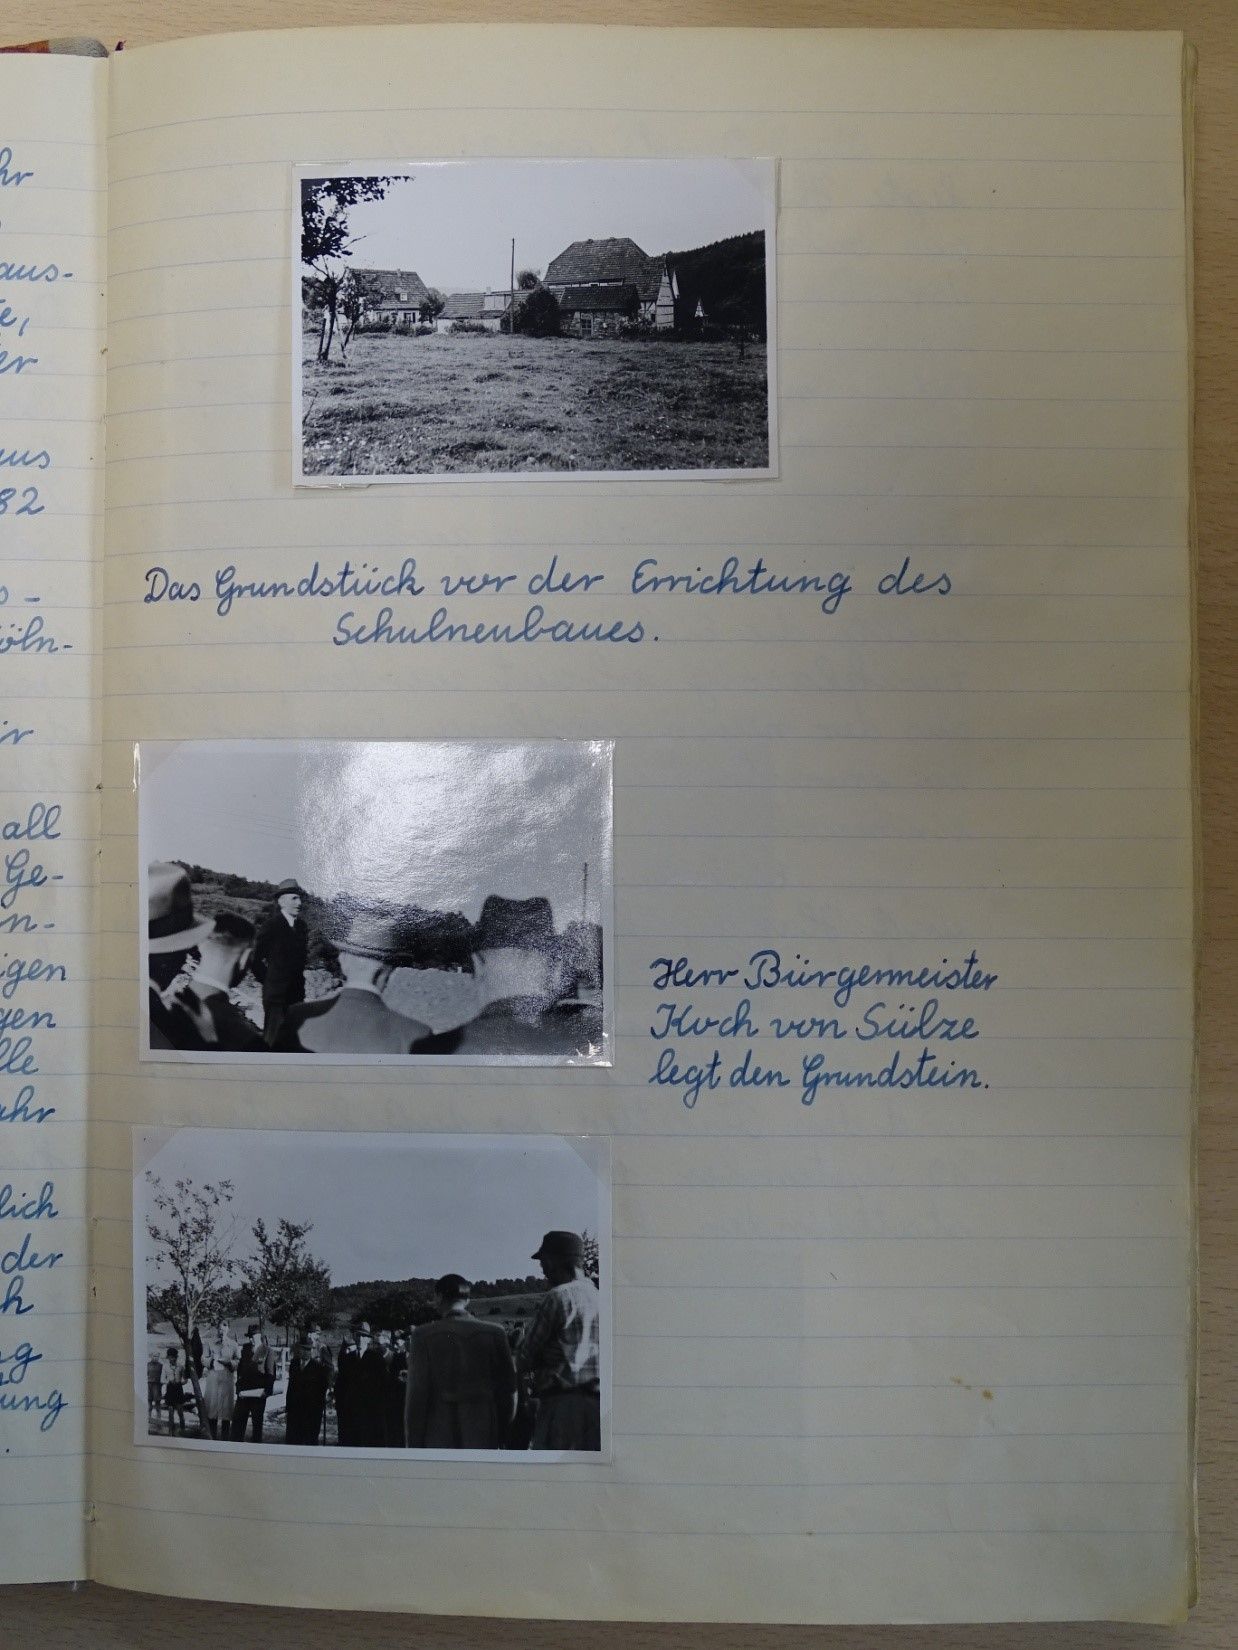 hr
aus-
te,
er
aus
82
s-
öln-
ir
all
Ge-
n-
igen
gen
lle
ahr
lich
der
ch
ng
tung
Das Grundstück vor der Errichtung des
Schulneubaues.
Herr Bürgermeister
Koch von Sülze
legt den Grundstein.